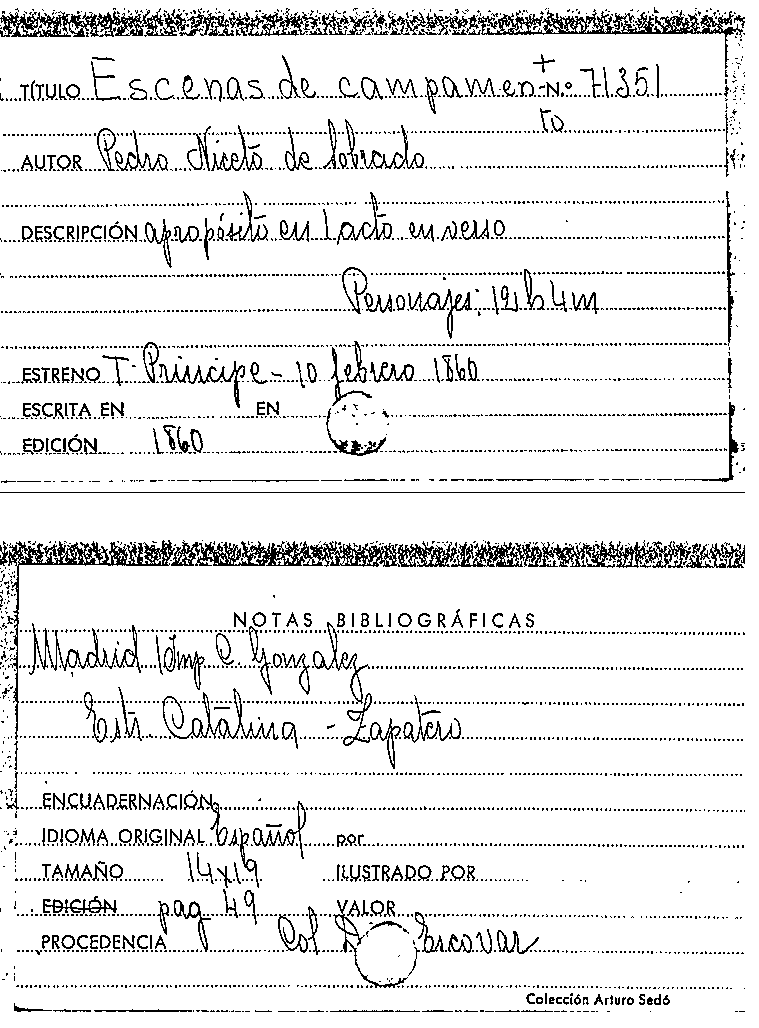 TÍTULO Escenas de campamen- N.º 71351
to
AUTOR Pedro Niceto de Sobrado
DESCRIPCIÓN apropósito en 1 acto en verso
Personajes: 12 h 4 m
ESTRENO T. Principe - 10 febrero 1860
ESCRITA EN EN
EDICIÓN 1860
NOTAS BIBLIOGRÁFICAS
Madrid Imp C. Gonzalez
Estr. Catalina - Zapatero
ENCUADERNACIÓN
IDIOMA ORIGINAL Español por
TAMAÑO 14x19 ILUSTRADO POR
EDICIÓN pag 49 VALOR
PROCEDENCIA Col Escovar
Colección Arturo Sedó